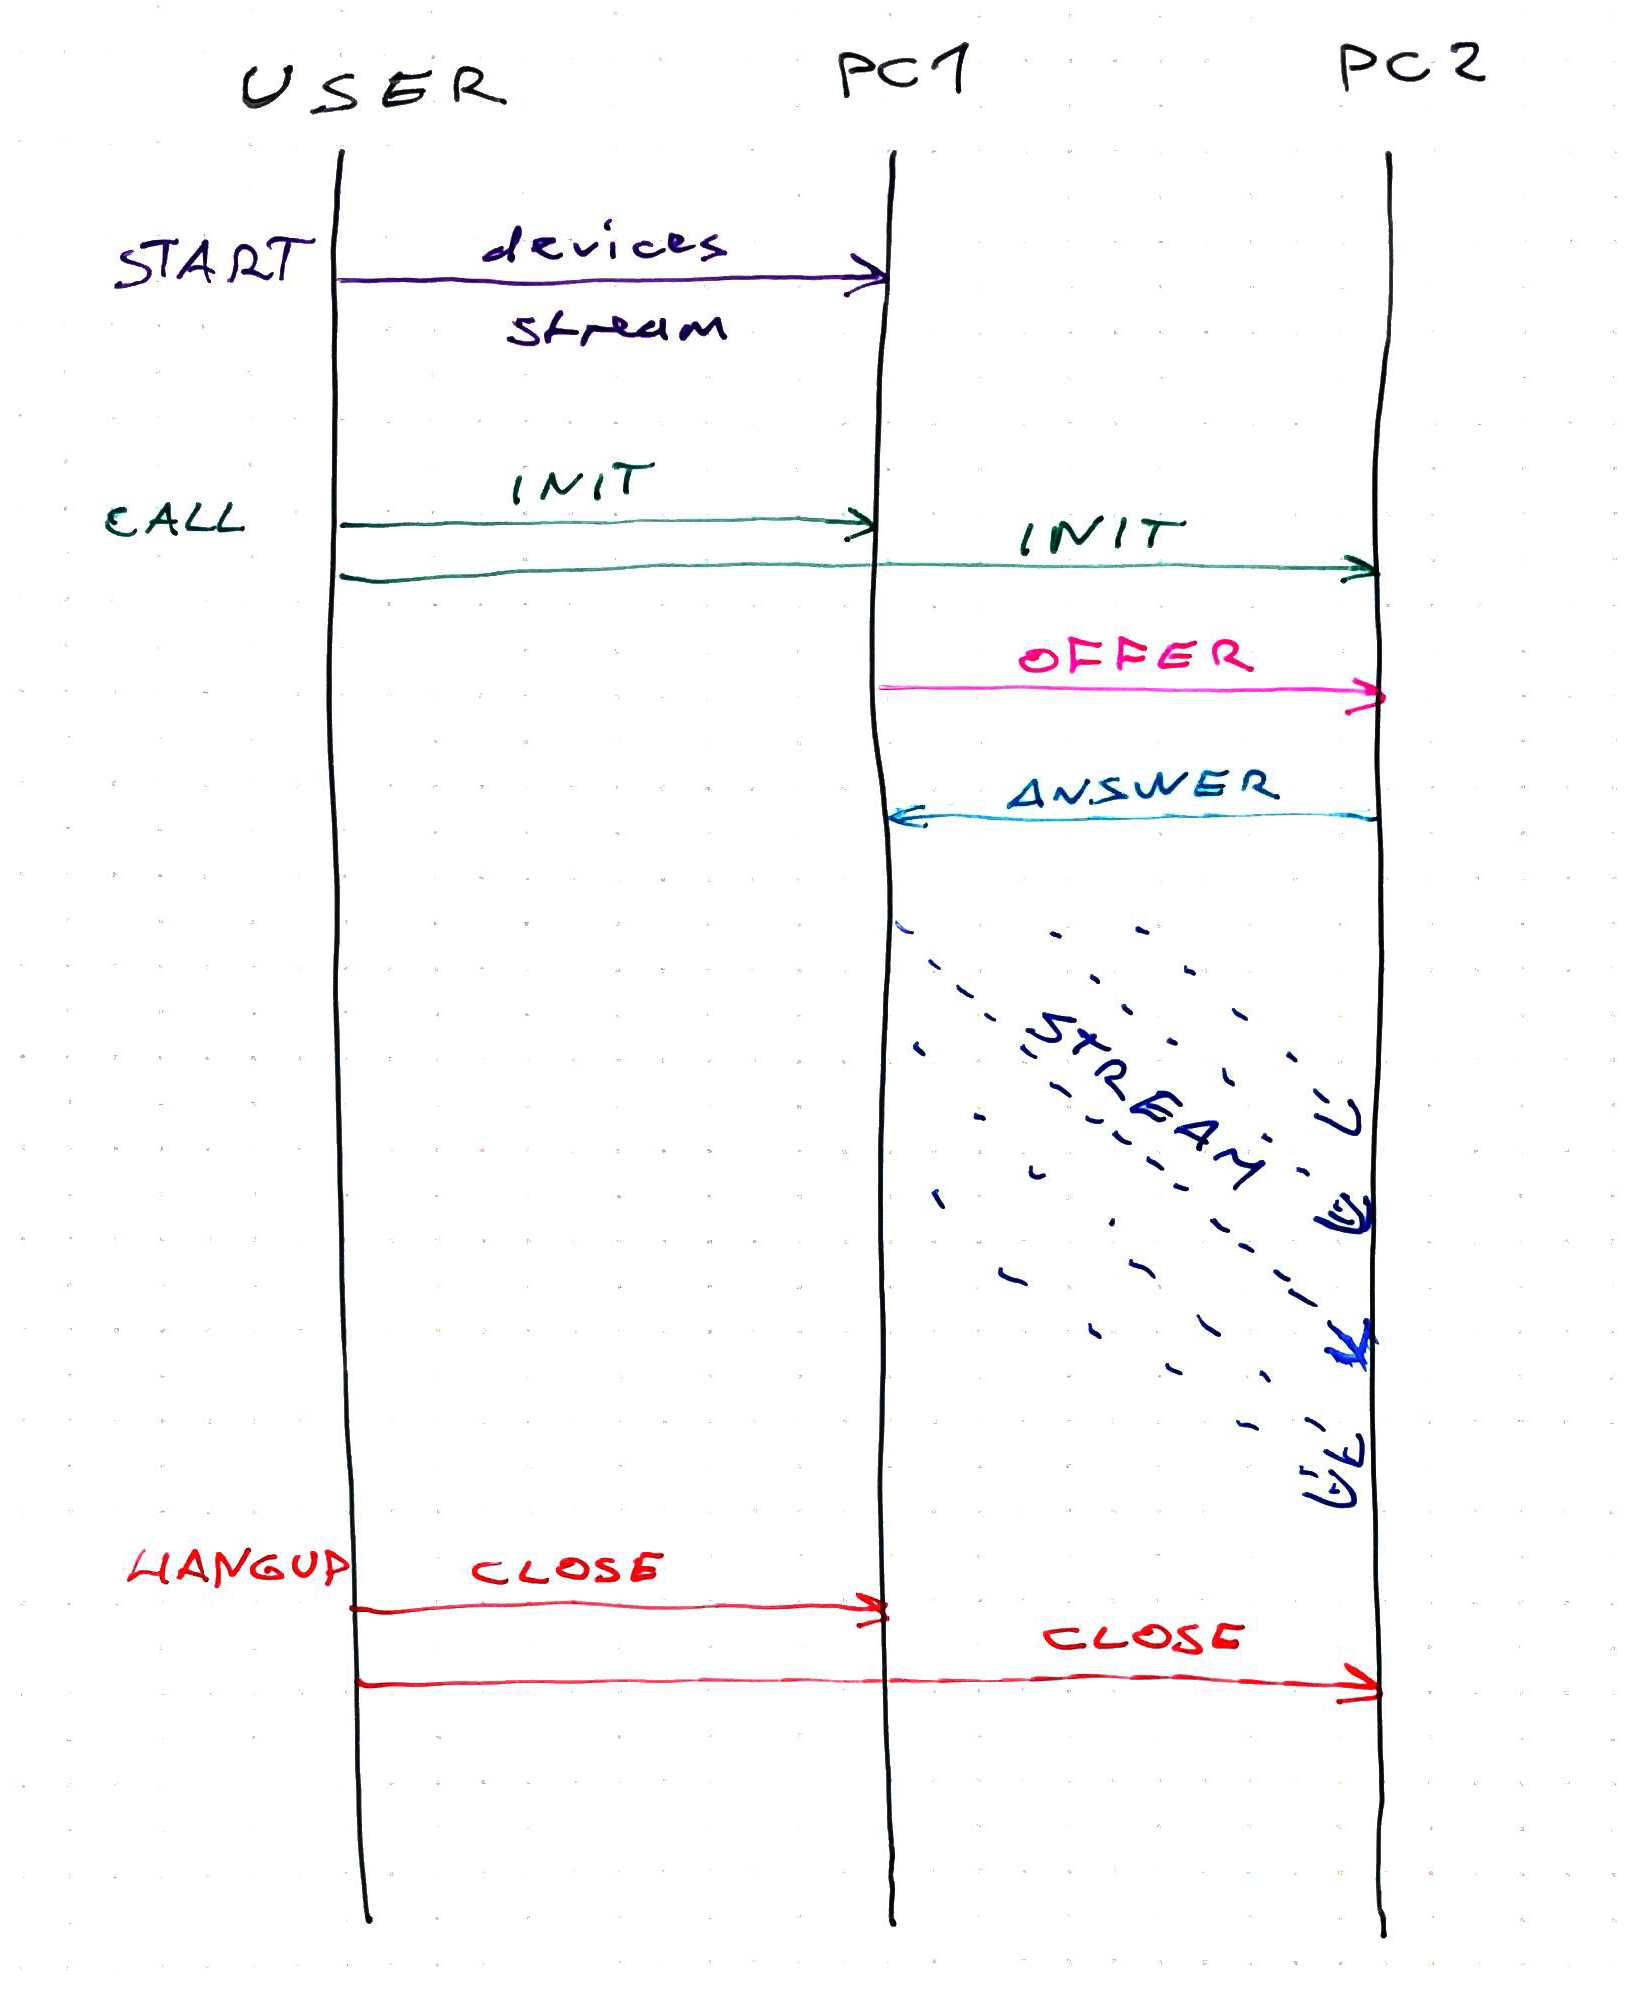 USER PC1 PC2
START devices
stream
CALL INIT
INIT
OFFER
ANSWER
STREAM
HANGUP CLOSE
CLOSE